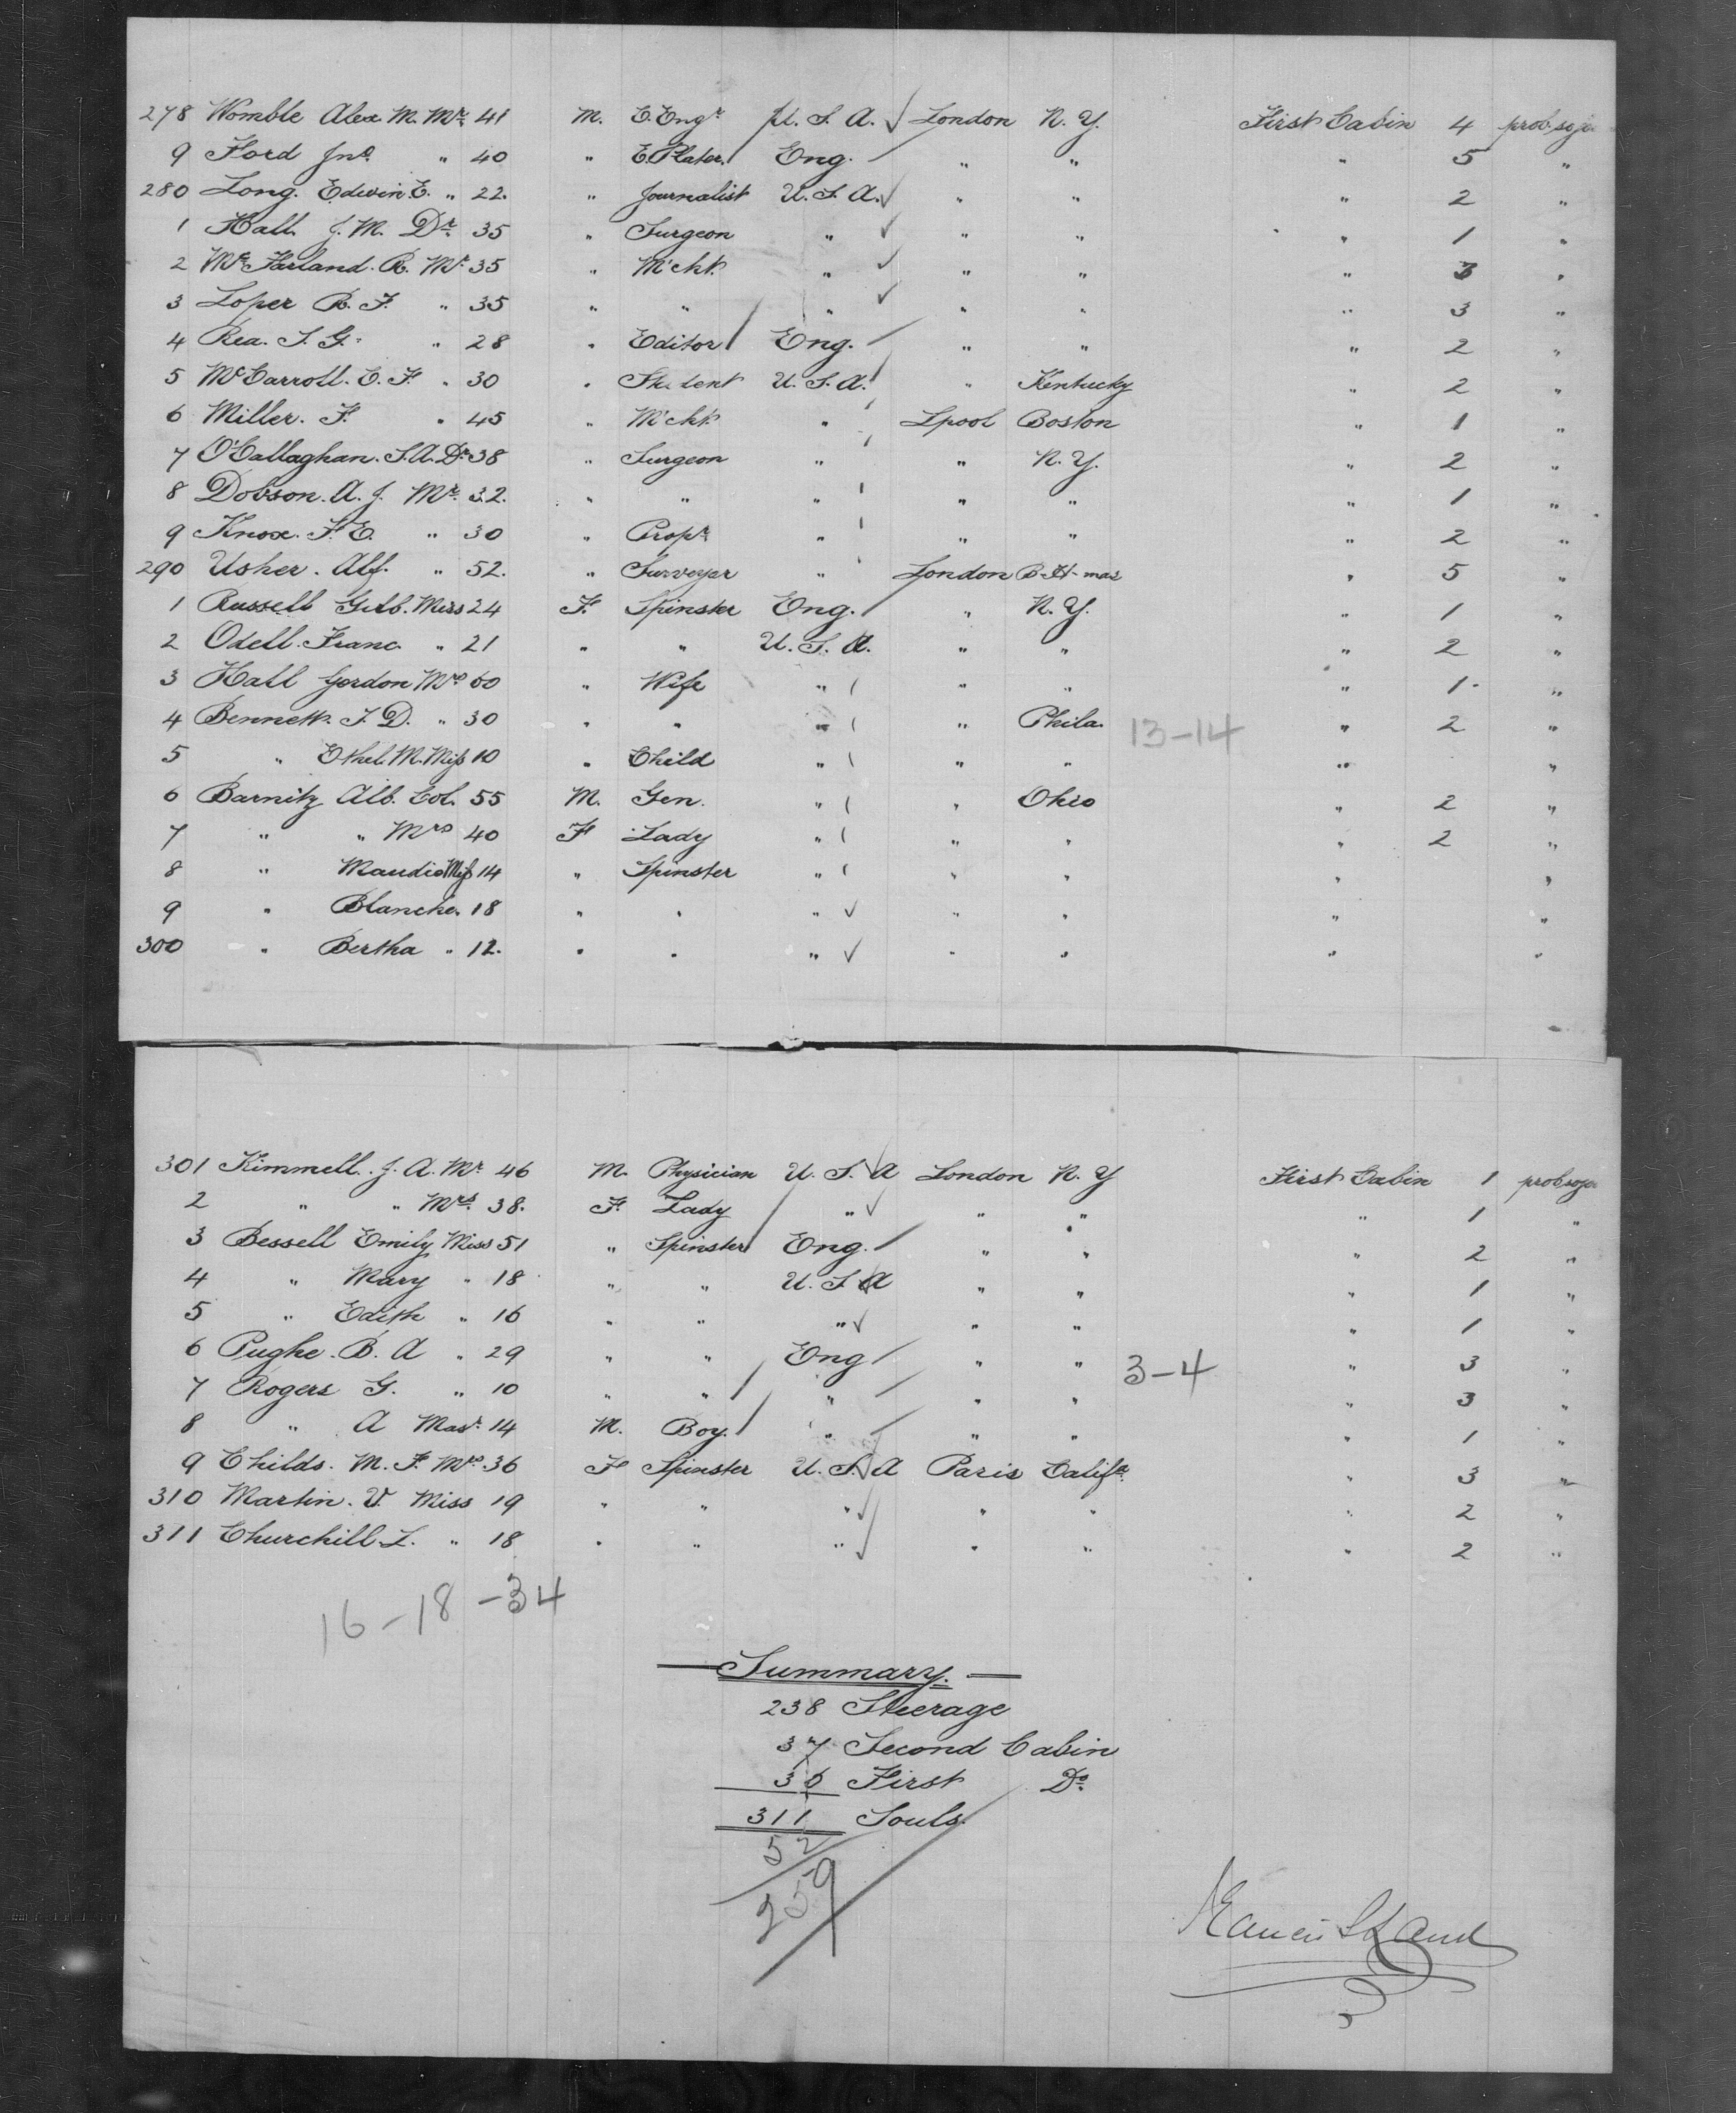 278 Womble Alex M. Mr. 41 M. E. Engr U. S. A. London N. Y. First Cabin 4 prob. soj
9 Ford Jno. " 40 " E. Plater Eng. " " " 5 "
280 Long. Edwin. E. " 22. " Journalist U. S. A. " " " 2 "
1 Hall J. M. Dr. 35 " Surgeon " " " " 1 "
2 McFarland. R. Mr. 35 " M'cht. " " " " 3 "
3 Loper R. F. " 35 " " " " " " 3 "
4 Rea. S. G. " 28 " Editor Eng. " " " 2 "
5 McCarroll. C. F. " 30 " Student U. S. A. " Kentucky " 2 "
6 Miller. F. " 45 " M'cht. " Lpool Boston " 1 "
7 O'Callaghan. S. A. Dr. 38 " Surgeon " " N. Y. " 2 "
8 Dobson. A. J. Mr. 32. " " " " " " 1 "
9 Knox. F. E. " 30 " Propr. " " " " 2 "
290 Usher. Alf. " 52. " Surveyor " London " 5 "
1 Russell Gertb. Miss 24 F. Spinster Eng. " N. Y. " 1 "
2 Odell. Franc. " 21 " " U. S. A. " " " 2 "
3 Hall Gordon Mrs 60 " Wife " " " " 1 "
4 Bennett. J. D. " 30 " " " " Phila. 13-14 " 2 "
5 " Ethel. M. Miss 10 " Child " " " " "
6 Barnitz Alb. Col. 55 M. Gen. " " Ohio " 2 "
7 " " Mrs 40 F Lady " " " " 2 "
8 " Maudie Miss 14 " Spinster " " " " "
9 " Blanche. 18 " " " " " " "
300 " Bertha " 12. " " " " " " "
301 Kimmell. J. A. Mr. 46 M. Physician U. S. A London N. Y First Cabin 1 prob soj
2 " " Mrs. 38. F. Lady " " " " 1 "
3 Bessell Emily Miss 51 " Spinster Eng. " " " 2 "
4 " Mary " 18 " " U. S. A " " " 1 "
5 " Edith " 16 " " " " " " 1 "
6 Pughe. B. A " 29 " " Eng " " 3-4 " 3 "
7 Rogers G. " 10 " " " " " " 3 "
8 " A Mastr 14 M. Boy. " " " " 1 "
9 Childs. M. F. Mrs. 36 F Spinster U. S. A Paris Califa. " 3 "
310 Martin. V. Miss 19 " " " " " " 2 "
311 Churchill. L. " 18 " " " " " " 2 "
16-18-34
Summary.
238 Steerage
37 Second Cabin
36 First Do.
311 Souls.
52
259